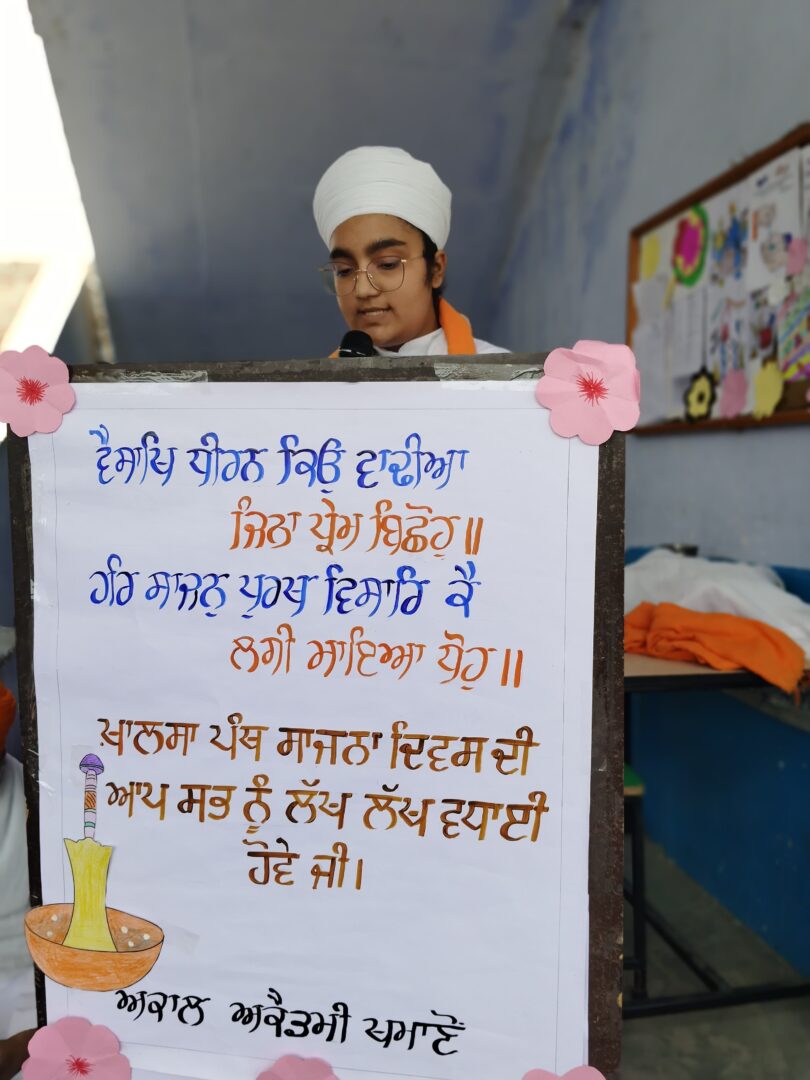 ਵੈਸਾਖਿ ਧੀਰਨ ਕਿਉ ਵਾਢੀਆ
ਜਿਨਾ ਪ੍ਰੇਮ ਬਿਛੋਹੁ॥
ਹਰਿ ਸਾਜਨੁ ਪੁਰਖੁ ਵਿਸਾਰਿ ਕੈ
ਲਗੀ ਮਾਇਆ ਧੋਹੁ॥
ਖ਼ਾਲਸਾ ਪੰਥ ਸਾਜਨਾ ਦਿਵਸ ਦੀ
ਆਪ ਸਭ ਨੂੰ ਲੱਖ ਲੱਖ ਵਧਾਈ
ਹੋਵੇ ਜੀ।
ਅਕਾਲ ਅਕੈਡਮੀ ਖਮਾਣੋਂ